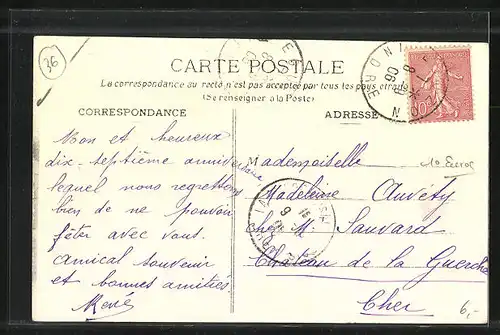 36
CARTE POSTALE
La correspondance au recto n'est pas acceptée par tous les pays étrangers
(Se renseigner à la Poste)
CORRESPONDANCE
Bon et heureux
dix-septième anniversaire
lequel nous regrettons
bien de ne pouvoir
fêter avec vous.
Amical souvenir
et bonnes amitiés
René
ADRESSE
Mademoiselle
Madeleine Auvéty
chez M. Sauvard
Château de la Guerche
Cher
INDRE
6,-